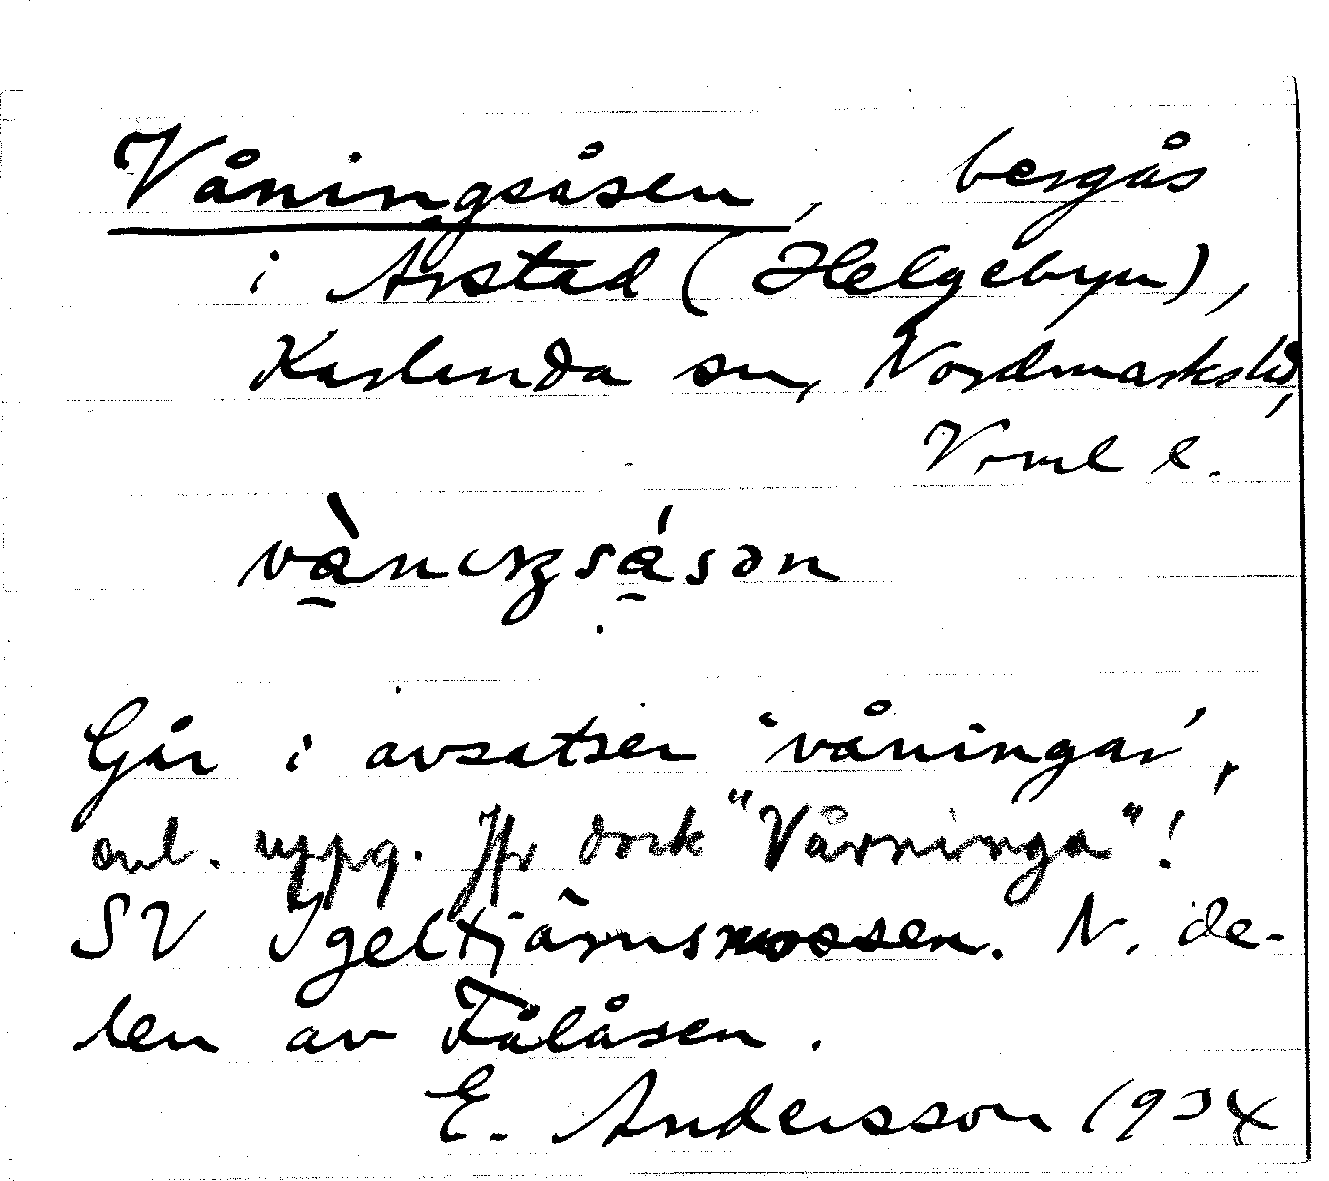 Våningsåsen, bergås
i Årstad (Helgebyn),
Karlanda sn, Nordmarks hd,
Värml l.
våniŋsåsən
Går i avsatser 'våningar',
enl. uppg. Jfr dock "Vårninga"!
SV Igeltjärnsmossen. N. de-
len av Fålåsen.
E. Andersson 1934